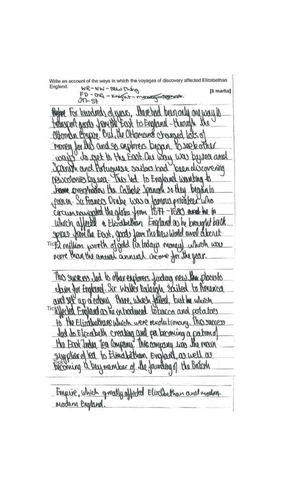 Write an account of the ways in which the voyages of discovery affected Elizabethan
England.
[8 marks]
For hundreds of years, there had been only one way to
transport goods from the East to England - through the
Ottoman Empire. But, the Ottomans charged lots of
money for this and so explorers began to seek other
ways to get to the East. One way was by sea and
Spanish and Portuguese sailors had been discovering
by sea. This led to England wanting to
the Catholic Spanish so they began to
Sir Francis Drake was a famous privateer who
circumnavigated the globe from 1577 - 1580 and he
which affected Elizabethan England as he brought back
spices from the East, goods from the New World and about
million worth of gold (in today's money) which was
more than the annual income for the year.
This success led to other explorers finding new places to
claim for England. Sir Walter Raleigh sailed to America
and set up a colony there, which failed, but he which
affected England as he introduced tobacco and potatoes
to the Elizabethans which were revolutionary. This success
led to Elizabeth creating and becoming a patron of
the East India Tea Company. This company was the main
supplier of tea to Elizabethan England, as well as
becoming a key member of the founding of the British
Empire, which greatly affected Elizabethan and modern
modern England.